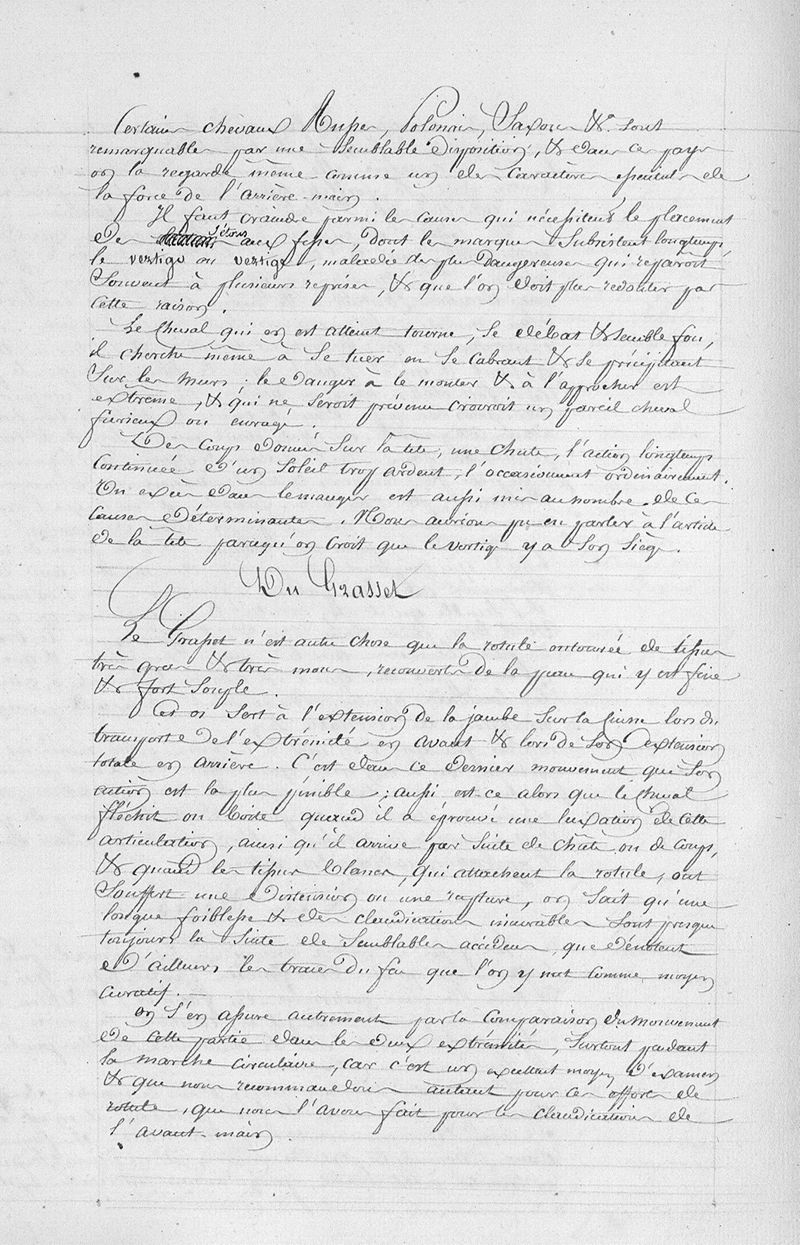 Certains chevaux Russes, Polonois, Saxons &. sont
remarquables par une semblable disposition, & dans ces pays
on la regarde même comme un des caractères essentiels de
la force de l'arrière-main.
Il faut craindre parmi les causes qui nécessitent le placement
des sétons aux fesses, dont les marques subsistent longtemps,
le vertige ou vertigo, maladie des plus dangereuses qui reparoît
souvent à plusieurs reprises, & que l'on doit plus redouter par
cette raison.
Le cheval qui en est atteint tourne, se débat & semble fou,
il cherche même à se tuer en se cabrant & se précipitant
sur les murs : le danger à le monter & à l'approcher est
extrême, & qui ne seroit prévenu croiroit un pareil cheval
furieux ou enragé.
Des coups donnés sur la tête, une chute, l'action longtemps
continuée d'un soleil trop ardent, l'occasionnent ordinairement.
Un excès dans le manger est aussi mis au nombre de ces
causes déterminantes. Nous aurions pu en parler à l'article
de la tête parcequ'on croit que le vertige y a son siège.
Du Grasset
Le Grasset n'est autre chose que la rotule entourée de tissus
très gras & très mous, recouverte de la peau qui y est fine
& fort souple.
Cet os sert à l'extension de la jambe sur la cuisse lors du
transport de l'extrémité en avant & lors de son extension
totale en arrière. C'est dans ce dernier mouvement que son
action est la plus pénible ; aussi est-ce alors que le cheval
fléchit ou boite quand il a éprouvé une luxation de cette
articulation, ainsi qu'il arrive par suite de chûte ou de coups,
& quand les tissus blancs, qui attachent la rotule, ont
souffert une distension ou une rupture, on sait qu'une
longue foiblesse & des claudications incurables sont presque
toujours la suite de semblables accidens, que dénotent
d'ailleurs les traces du feu que l'on y met comme moyen
curatif. —
On s'en assure autrement par la comparaison du mouvement
de cette partie dans les deux extrémités, surtout pendant
la marche circulaire, car c'est un excellent moyen d'examen
& que nous recommandons autant pour ces efforts de
rotule, que nous l'avons fait pour les claudications de
l'avant-main.